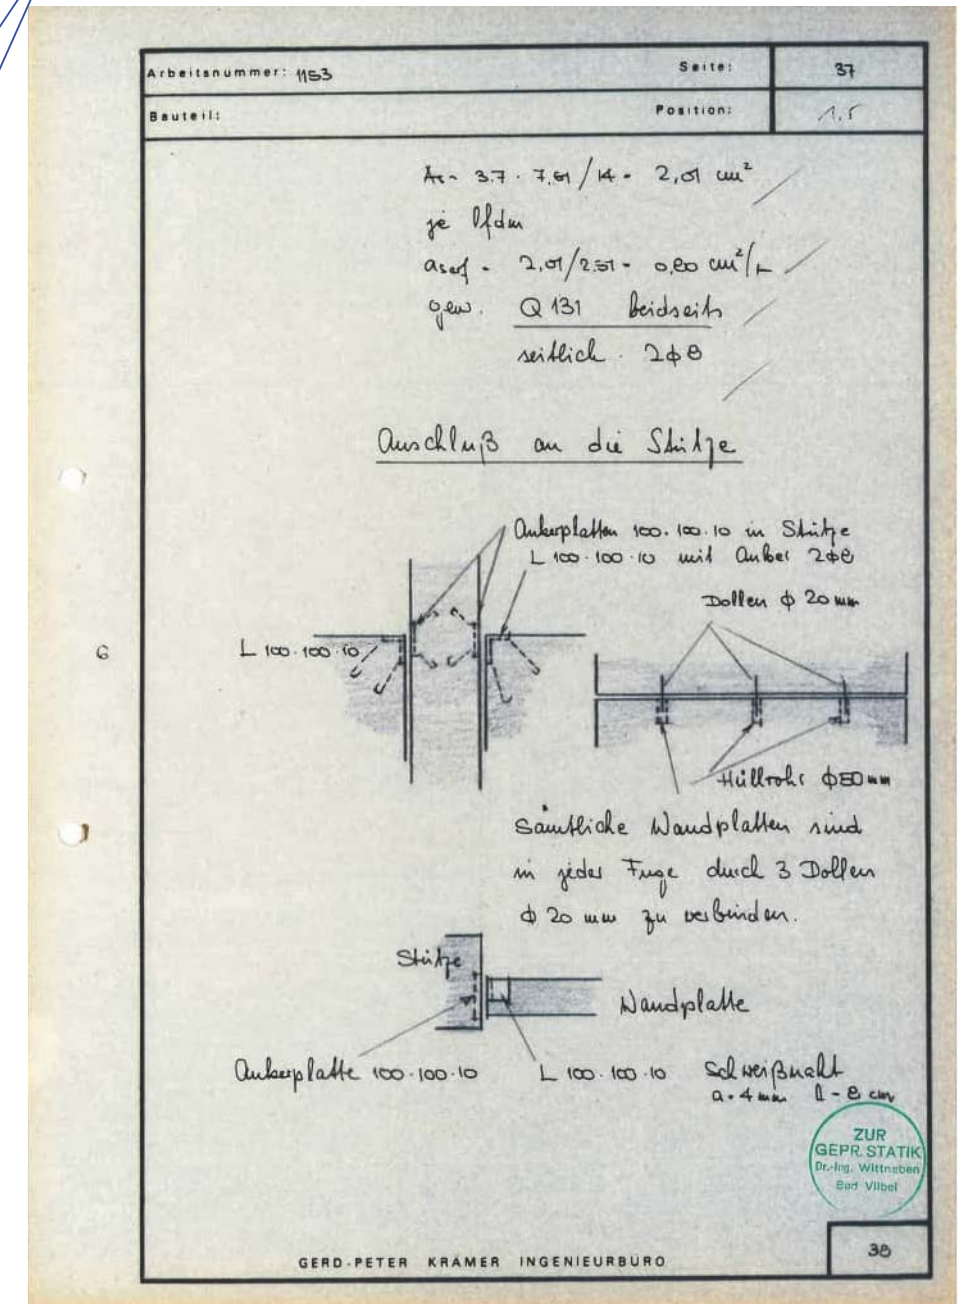 Arbeitsnummer: 1153
Seite: 37
Bauteil:
Position: 1.5
Ae = 3.7 · 7,61/14 = 2,01 cm²
je lfdm
aserf = 2,01/2.51 = 0,80 cm²/m
gew. Q 131 beidseits
seitlich 2φ8
Anschluß an die Stütze
Ankerplatten 100·100·10 in Stütze
L 100·100·10 mit Anker 2φ8
Dollen φ 20 mm
6
L 100·100·10
Hüllrohr φ50mm
Sämtliche Wandplatten sind
in jeder Fuge durch 3 Dollen
φ 20 mm zu verbinden.
Stütze
Wandplatte
Ankerplatte 100·100·10
L 100·100·10
Schweißnaht
a = 4mm l = 8 cm
ZUR
GEPR. STATIK
Dr.-Ing. Wittneben
Bad Vilbel
38
GERD-PETER KRÄMER INGENIEURBÜRO